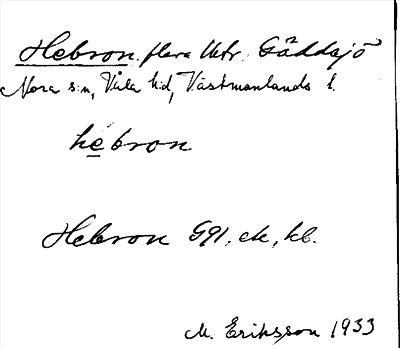 Hebron. flera lktr. Gäddsjö
Nora s:n, Våla hd, Västmanlands l.
hebron
Hebron G91. ek, kb.
M. Eriksson 1933